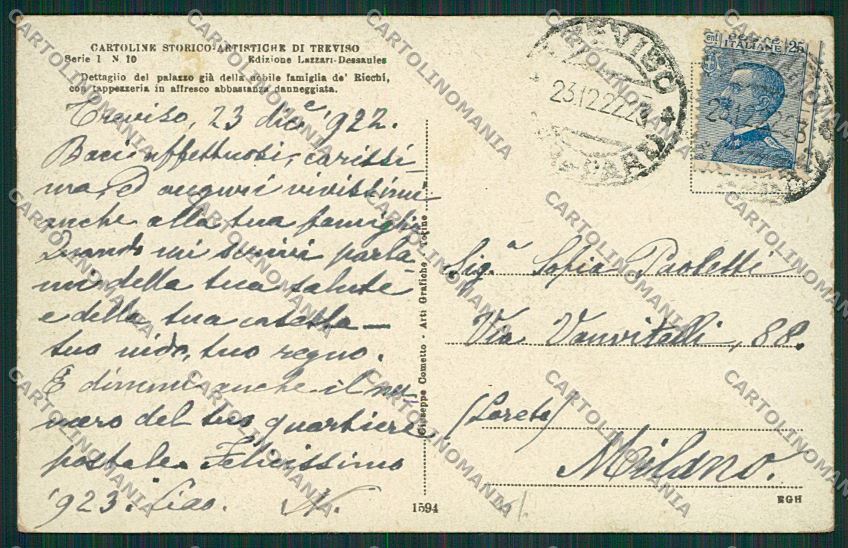 CARTOLINE STORICO-ARTISTICHE DI TREVISO
Serie 1 N 10 Edizione Lazzari-Dessaules
Dettaglio del palazzo già della nobile famiglia de' Ricchi,
con tappezzeria in affresco abbastanza danneggiata.
Treviso, 23 dic.e 922.
Baci affettuosi, carissi
ma, ed auguri vivissimi
anche alla tua famiglia
Quando mi scrivi parla
mi della tua salute
e della tua casetta —
tuo nido, tuo regno.
E dimmi anche il nu-
mero del tuo quartiere
postale. Felicissimo
'923. Ciao. N.
Giuseppe Cometto - Arti Grafiche - Torino
1594
TREVISO
23.12.22.2
25
ITALIANE
Sig.a Sofia Paoletti
Via Vanvitelli, 88.
(Loreto)
Milano.
EGH
CARTOLINOMANIA